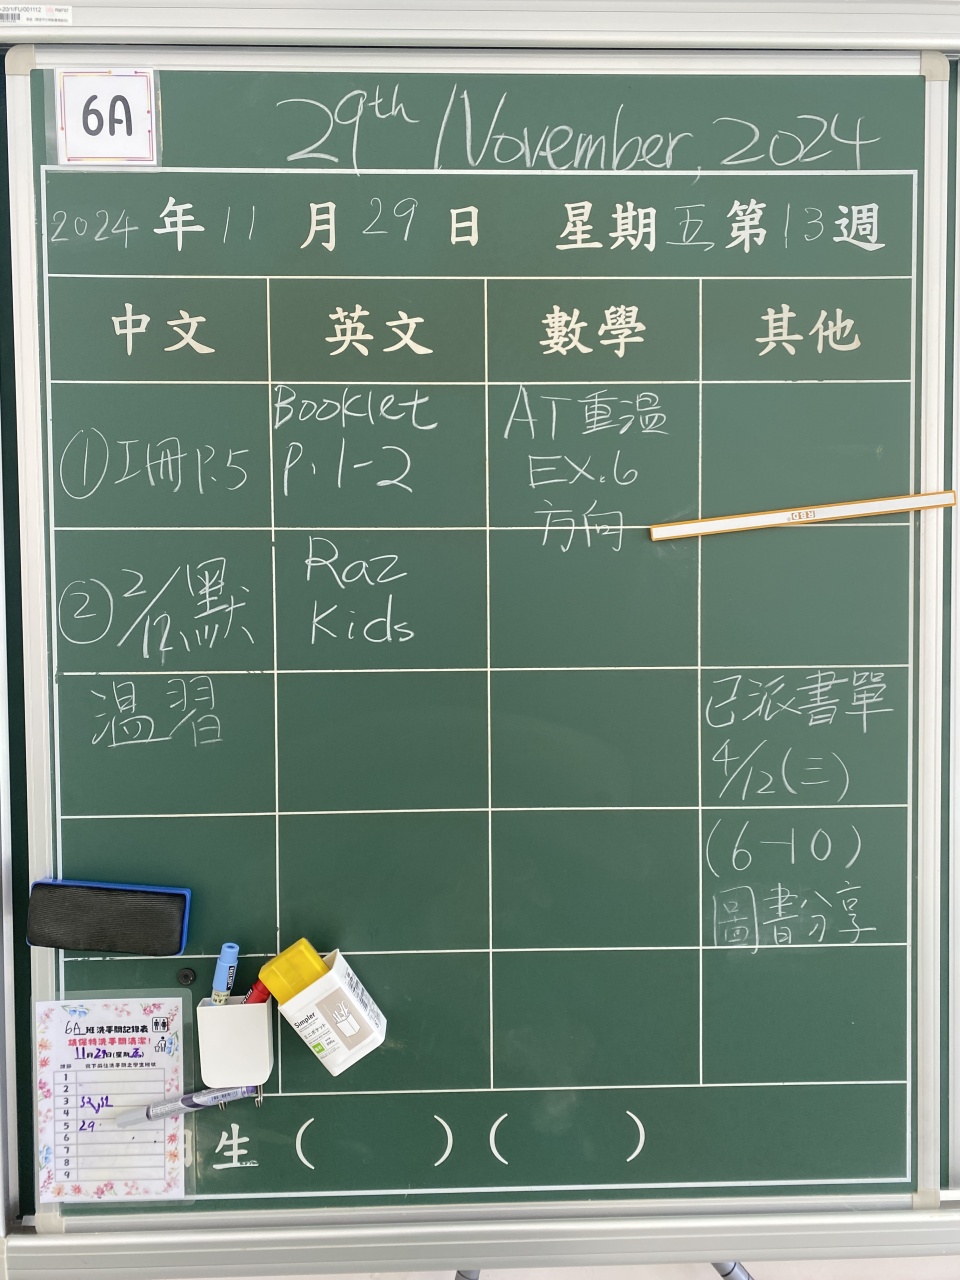 6A
29th November, 2024
2024年11月29日 星期五第13週
中文 英文 數學 其他
①工冊P.5
②2/12默
溫習
Booklet
P.1-2
Raz
Kids
AT重溫
EX.6
方向
已派書單
4/12(三)
(6-10)
圖書分享
生 ( ) ( )
6A班洗手間記錄表
請保持洗手間清潔！
11月29日(星期五)
1
2
3 32,31
4
5 29
6
7
8
9
Simpler